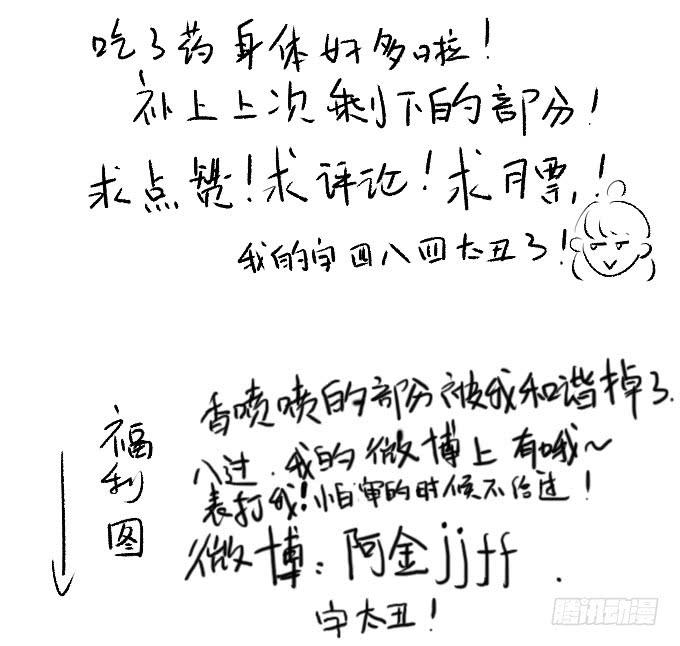 吃了药身体好多啦！
补上上次剩下的部分！
求点赞！求评论！求月票！
我的字四八四太丑了！
香喷喷的部分被我和谐掉了.
八过.我的微博上有哦～
表打我！怕审的时候不给过！
微博：阿金jjff.
字太丑！
福利图
腾讯动漫